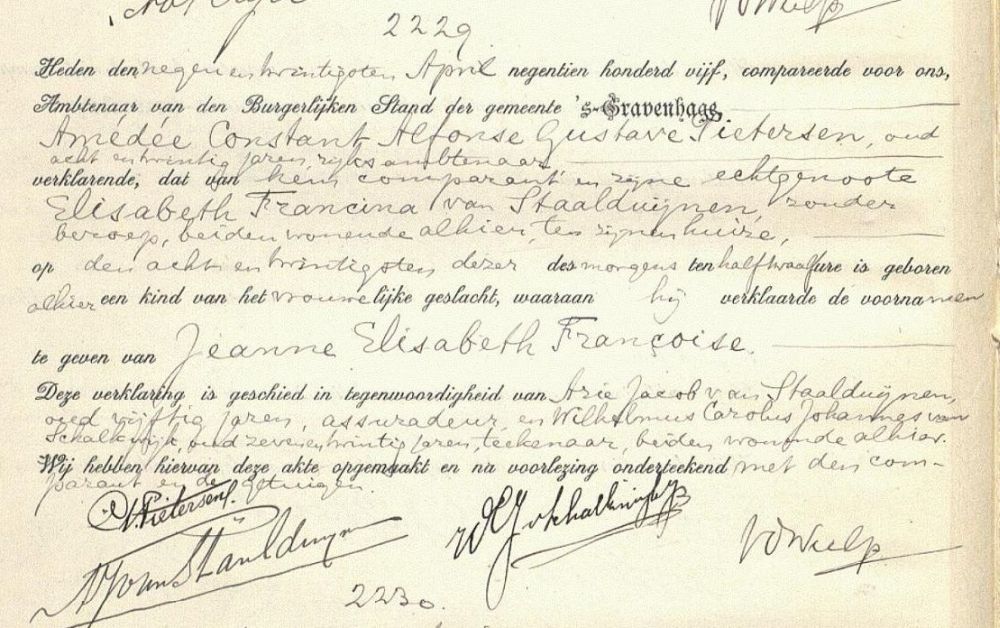 2229.
Heden den negen en twintigsten April negentien honderd vijf, compareerde voor ons,
Ambtenaar van den Burgerlijken Stand der gemeente 's-Gravenhage,
Amédée Constant Alfonse Gustave Pietersen, oud
acht en twintig jaren, rijksambtenaar
verklarende, dat van hem comparant en zijne echtgenoote
Elisabeth Francina van Staalduijnen, zonder
beroep, beiden wonende alhier, ten zijnen huize,
op den acht en twintigsten dezer des morgens ten half twaalf ure is geboren
alhier een kind van het vrouwelijke geslacht, waaraan hij verklaarde de voornamen
te geven van Jeanne Elisabeth Françoise.
Deze verklaring is geschied in tegenwoordigheid van Arie Jacob van Staalduijnen,
oud vijftig jaren, assuradeur, en Wilhelmus Carolus Johannes van
Schalkwijk, oud zevenentwintig jaren, teekenaar, beiden wonende alhier.
Wij hebben hiervan deze akte opgemaakt en na voorlezing onderteekend met den com-
parant en de getuigen.
Pietersen
AJ van Staalduijnen
2230.